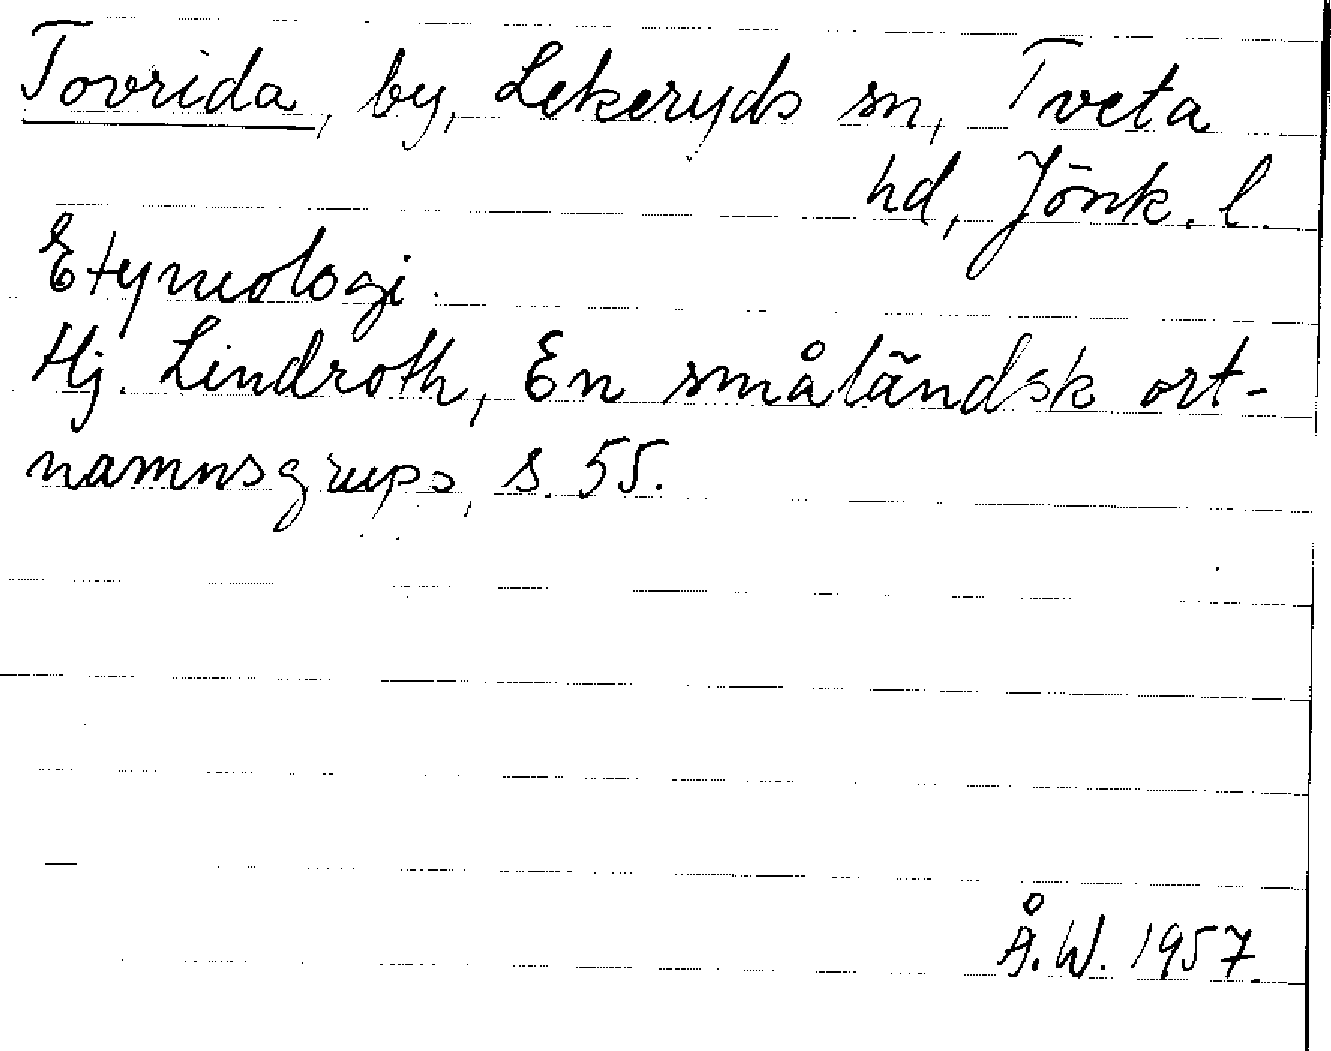 Tovrida, by, Lekeryds sn, Tveta
hd, Jönk. l.
Etymologi.
Hj. Lindroth, En småländsk ort-
namnsgrupp, s. 55.
Å.W. 1957.